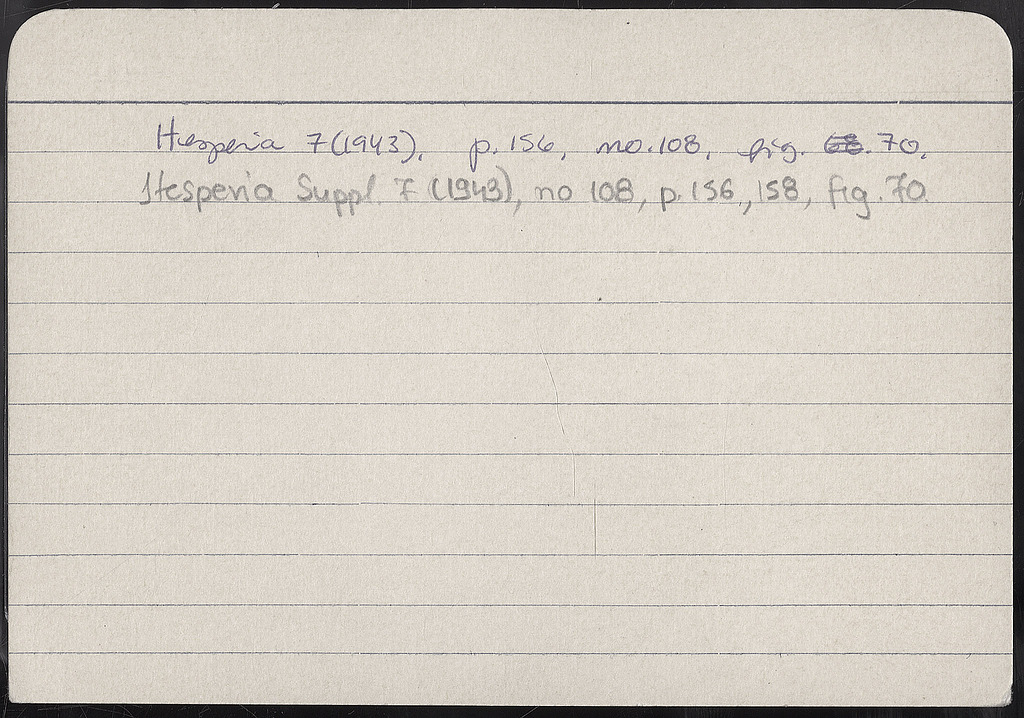 Hesperia 7(1943), p.156, no.108, fig. 70.
Hesperia Suppl. 7 (1943), no 108, p. 156, 158, fig. 70.